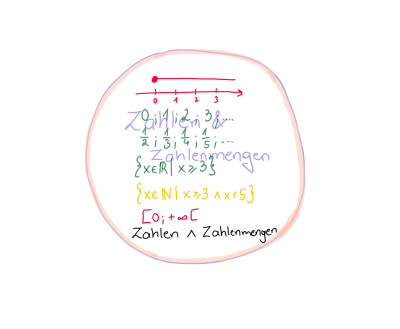 0 1 2 3
0 ; 1 ; 2 ; 3 ; ...
Zahlen &
1/2 ; 1/3 ; 1/4 ; 1/5 ; ...
Zahlenmengen
{x∈ℝ | x ⩾ 3}
{x∈ℕ | x ⩾ 3 ∧ x ⩽ 5}
[0; +∞[
Zahlen ∧ Zahlenmengen